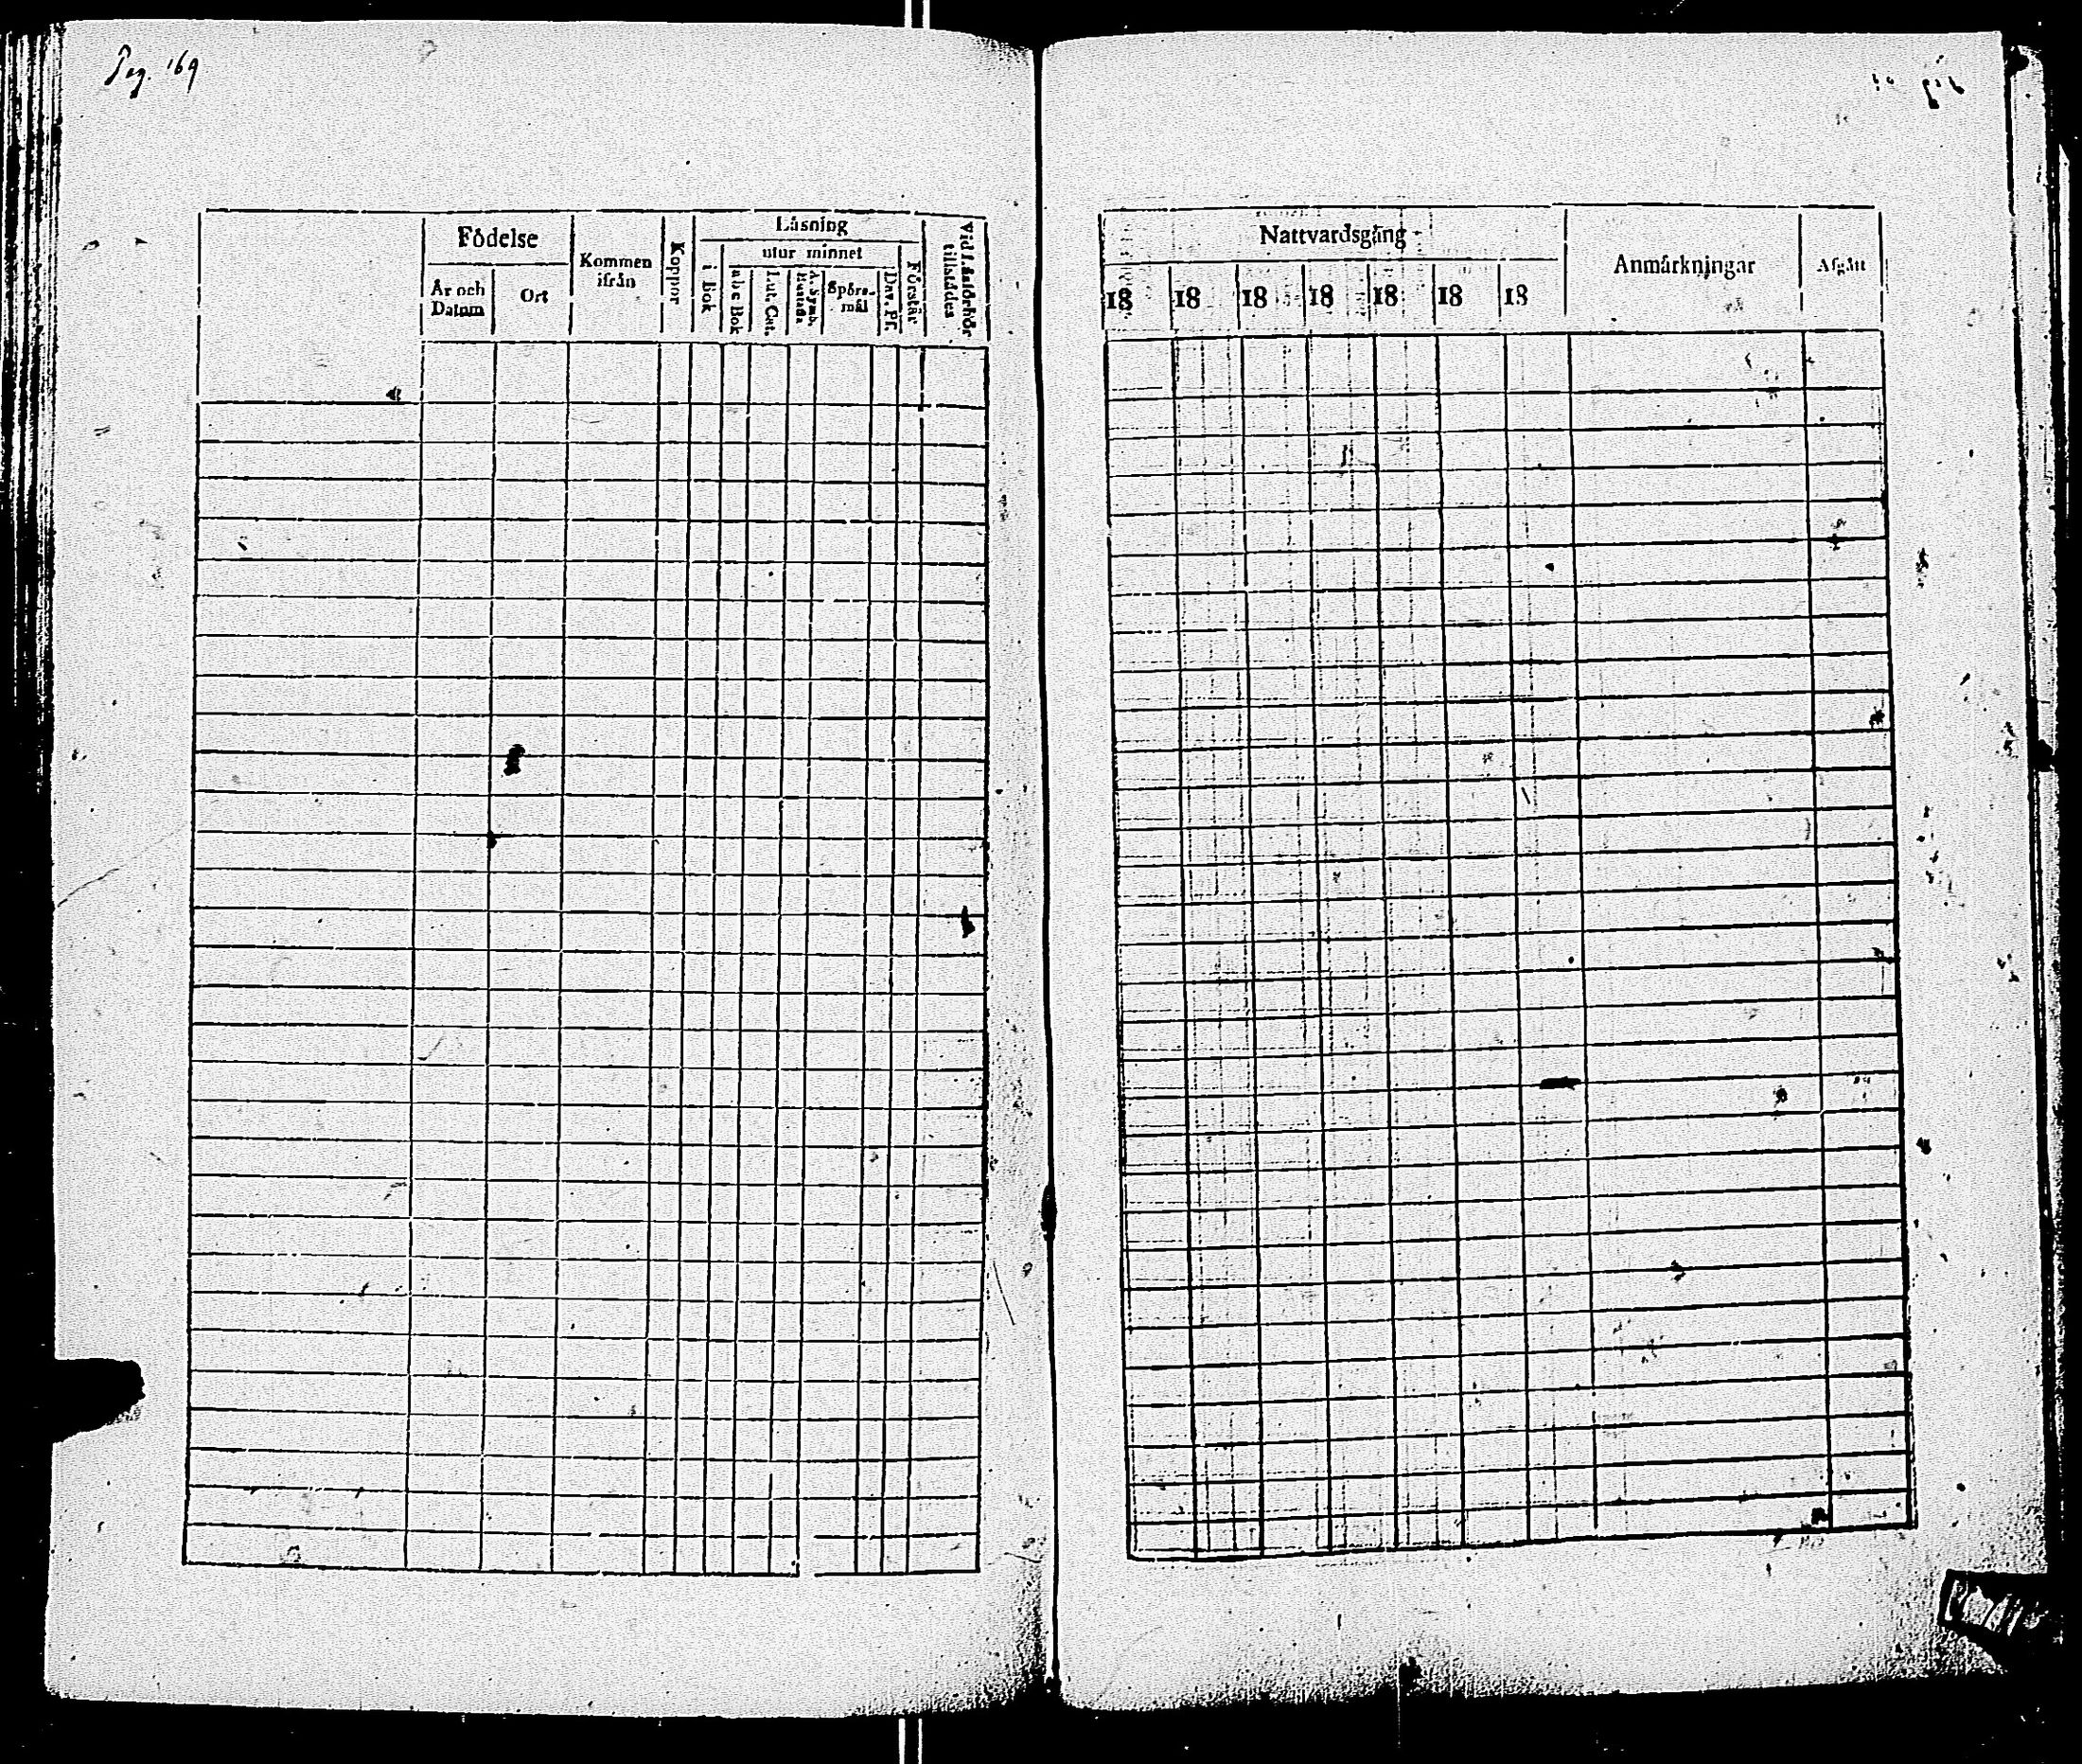 Pag. 169
Födelse
År och Datum
Ort
Kommen ifrån
Koppor
Läsning
i Bok
utur minnet
abc Bok
Lut. Cat.
Spörs-mål
Dav. Ps.
Förstår
Vid Läsförhör tillstädes
Nattvardsgång
18 18 18 18 18 18 18
Anmärkningar
Afgått